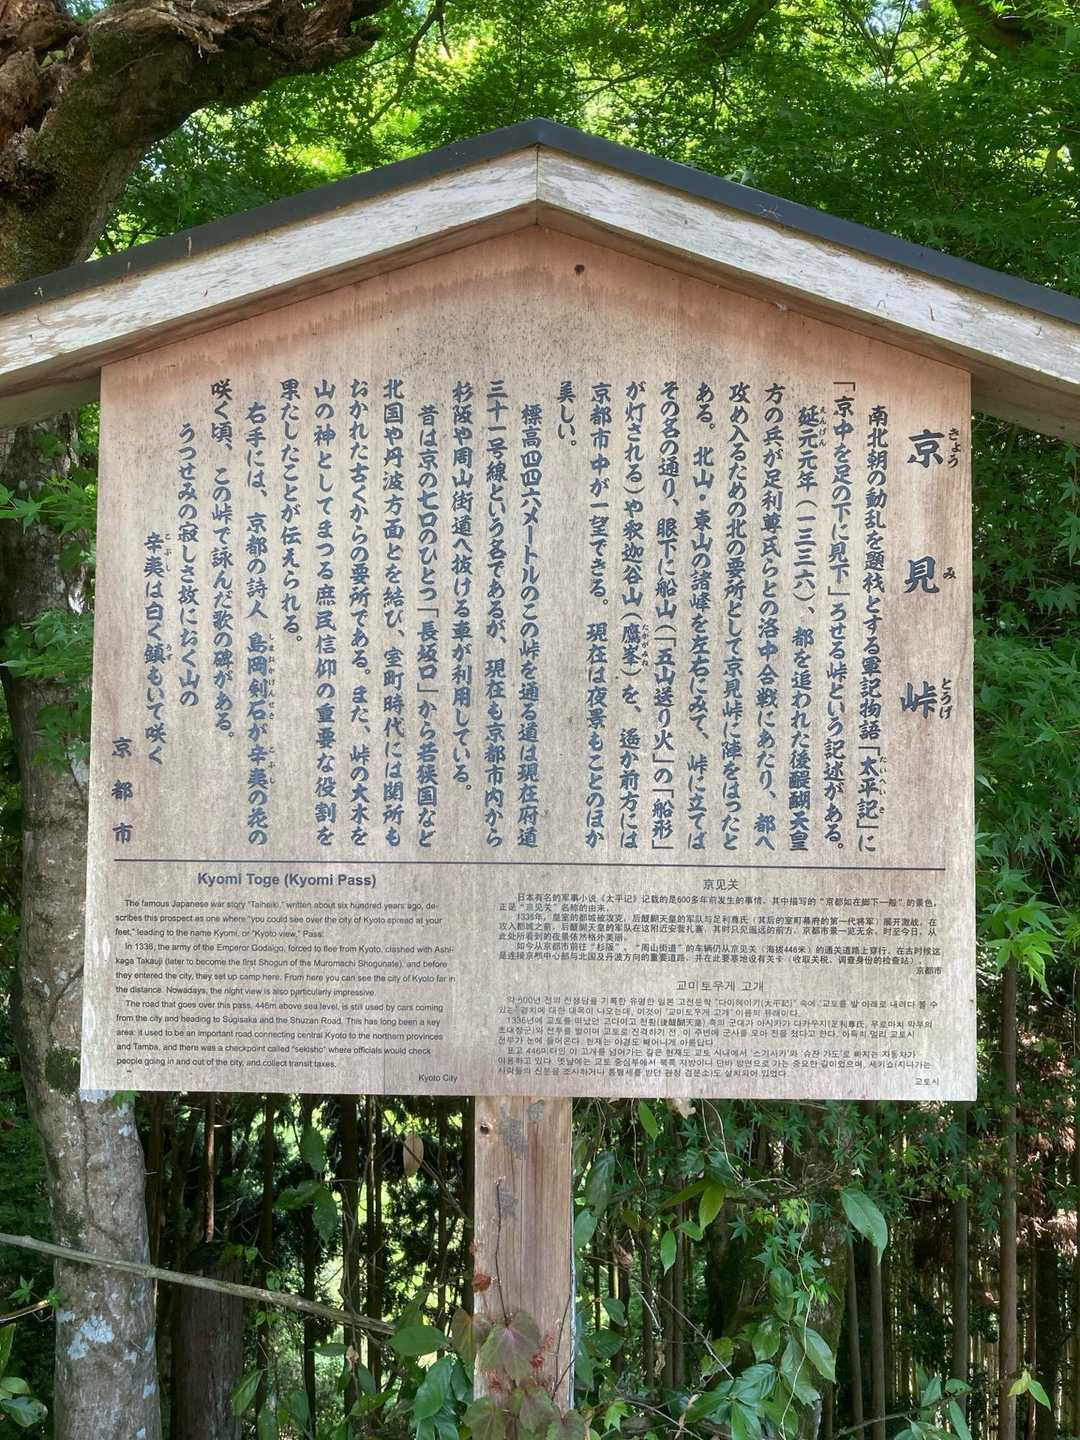 京見峠
きょうみとうげ
南北朝の動乱を題材とする軍記物語「太平記」に
たいへいき
「京中を足の下に見下」ろせる峠という記述がある。
延元元年（一三三六）、都を追われた後醍醐天皇
えんげん
方の兵が足利尊氏らとの洛中合戦にあたり、都へ
攻め入るための北の要所として京見峠に陣をはったと
ある。北山・東山の諸峰を左右にみて、峠に立てば
その名の通り、眼下に船山（「五山送り火」の「船形」
が灯される）や釈迦谷山（鷹峯）を、遥か前方には
たかがみね
京都市中が一望できる。現在は夜景もことのほか
美しい。
標高四四六メートルのこの峠を通る道は現在府道
三十一号線という名であるが、現在も京都市内から
杉阪や周山街道へ抜ける車が利用している。
昔は京の七口のひとつ「長坂口」から若狭国など
北国や丹波方面とを結び、室町時代には関所も
おかれた古くからの要所である。また、峠の大木を
山の神としてまつる庶民信仰の重要な役割を
果たしたことが伝えられる。
右手には、京都の詩人 島岡剣石が辛夷の花の
しまおかけんせき
こぶし
咲く頃、この峠で詠んだ歌の碑がある。
うつせみの寂しさ故におく山の
辛夷は白く鎮もいて咲く
こぶし
うず
京都市
Kyomi Toge (Kyomi Pass)
The famous Japanese war story "Taiheiki," written about six hundred years ago, de-
scribes this prospect as one where "you could see over the city of Kyoto spread at your
feet," leading to the name Kyomi, or "Kyoto view," Pass.
In 1336, the army of the Emperor Godaigo, forced to flee from Kyoto, clashed with Ashi-
kaga Takauji (later to become the first Shogun of the Muromachi Shogunate), and before
they entered the city, they set up camp here. From here you can see the city of Kyoto far in
the distance. Nowadays, the night view is also particularly impressive.
The road that goes over this pass, 446m above sea level, is still used by cars coming
from the city and heading to Sugisaka and the Shuzan Road. This has long been a key
area: it used to be an important road connecting central Kyoto to the northern provinces
and Tamba, and there was a checkpoint called "sekisho" where officials would check
people going in and out of the city, and collect transit taxes.
Kyoto City
京见关
日本有名的军事小说《太平记》记载的是600多年前发生的事情，其中描写的"京都如在脚下一般"的景色，
正是"京见关"名称的由来。
1336年，皇室的都城被攻克，后醍醐天皇的军队与足利尊氏（其后的室町幕府的第一代将军）展开激战，在
攻入都城之前，后醍醐天皇的军队在这附近安营扎寨，其时只见遥远的前方，京都市景一览无余，时至今日，从
此处所看到的夜景依然格外美丽。
如今从京都市前往"杉阪"、"周山街道"的车辆仍从京见关（海拔446米）的通关道路上穿行，在古时候这
是连接京都中心部与北国及丹波方向的重要道路，并在此要塞地设有关卡（收取关税、调查身份的检查站）。
京都市
교미토우게 고개
약 600년 전의 전쟁담을 기록한 유명한 일본 고전문학 "다이헤이키(太平記)" 속에 '교토를 발 아래로 내려다 볼 수
있는' 경치에 대한 대목이 나오는데, 이것이 '교미토우게 고개' 이름의 유래이다.
1336년에 교토를 떠났던 고다이고 천황(後醍醐天皇) 측의 군대가 아시카가 다카우지(足利尊氏, 무로마치 막부의
초대장군)와 전투를 벌이며 교토로 진격하기 전에, 이 주변에 군사를 모아 진을 쳤다고 한다. 아득히 멀리 교토시
전부가 눈에 들어온다. 현재는 야경도 빼어나게 아름답다.
표고 446미터인 이 고개를 넘어가는 길은 현재도 교토 시내에서 '스기사카'와 '슈잔 가도'로 빠지는 자동차가
이용하고 있다. 옛날에는 교토 중심부에서 북쪽 지방이나 단바 방면으로 가는 중요한 길이었으며, 세키쇼(지나가는
사람들의 신분을 조사하거나 통행세를 받던 관청 검문소)도 설치되어 있었다.
교토시